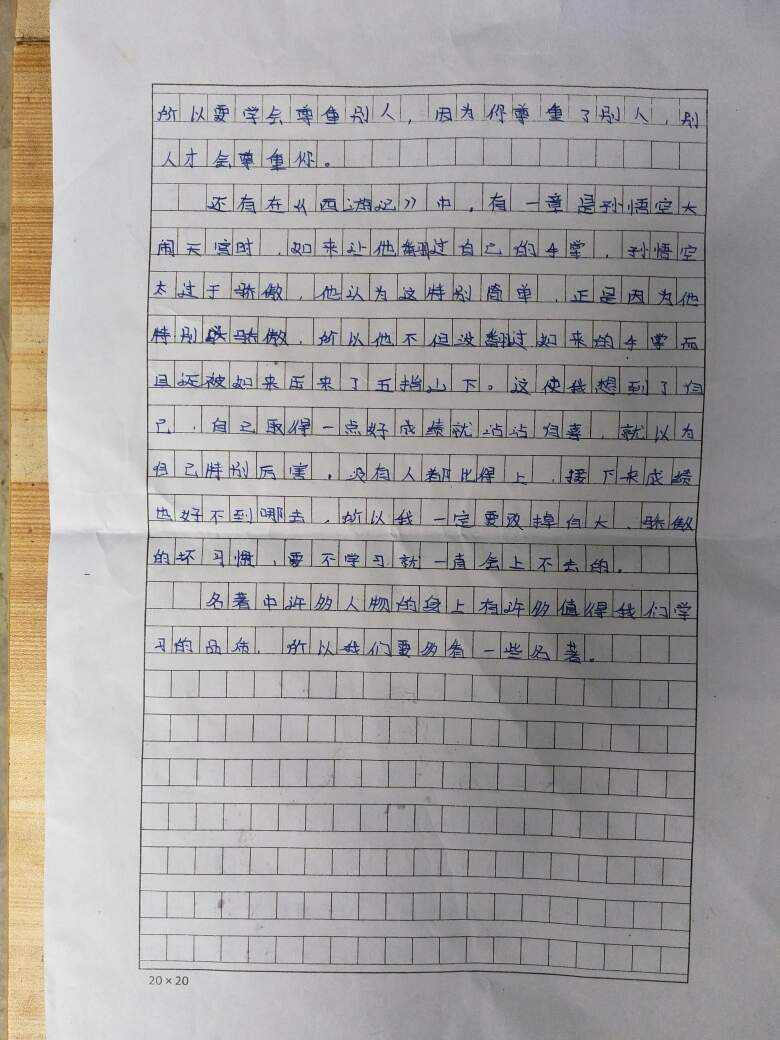 所以要学会尊重别人，因为你尊重了别人，别
人才会尊重你。
还有在《西游记》中，有一章是孙悟空大
闹天宫时，如来让他翻过自己的手掌，孙悟空
太过于骄傲，他认为这特别简单，正是因为他
特别骄傲，所以他不但没翻过如来的手掌而
且还被如来压来了五指山下。这使我想到了自
己，自己取得一点好成绩就沾沾自喜，就以为
自己特别厉害，没有人都比得上，接下来成绩
也好不到哪去，所以我一定要改掉自大、骄傲
的坏习惯，要不学习就一直会上不去的。
名著中许多人物的身上有许多值得我们学
习的品质，所以我们要多看一些名著。
20×20